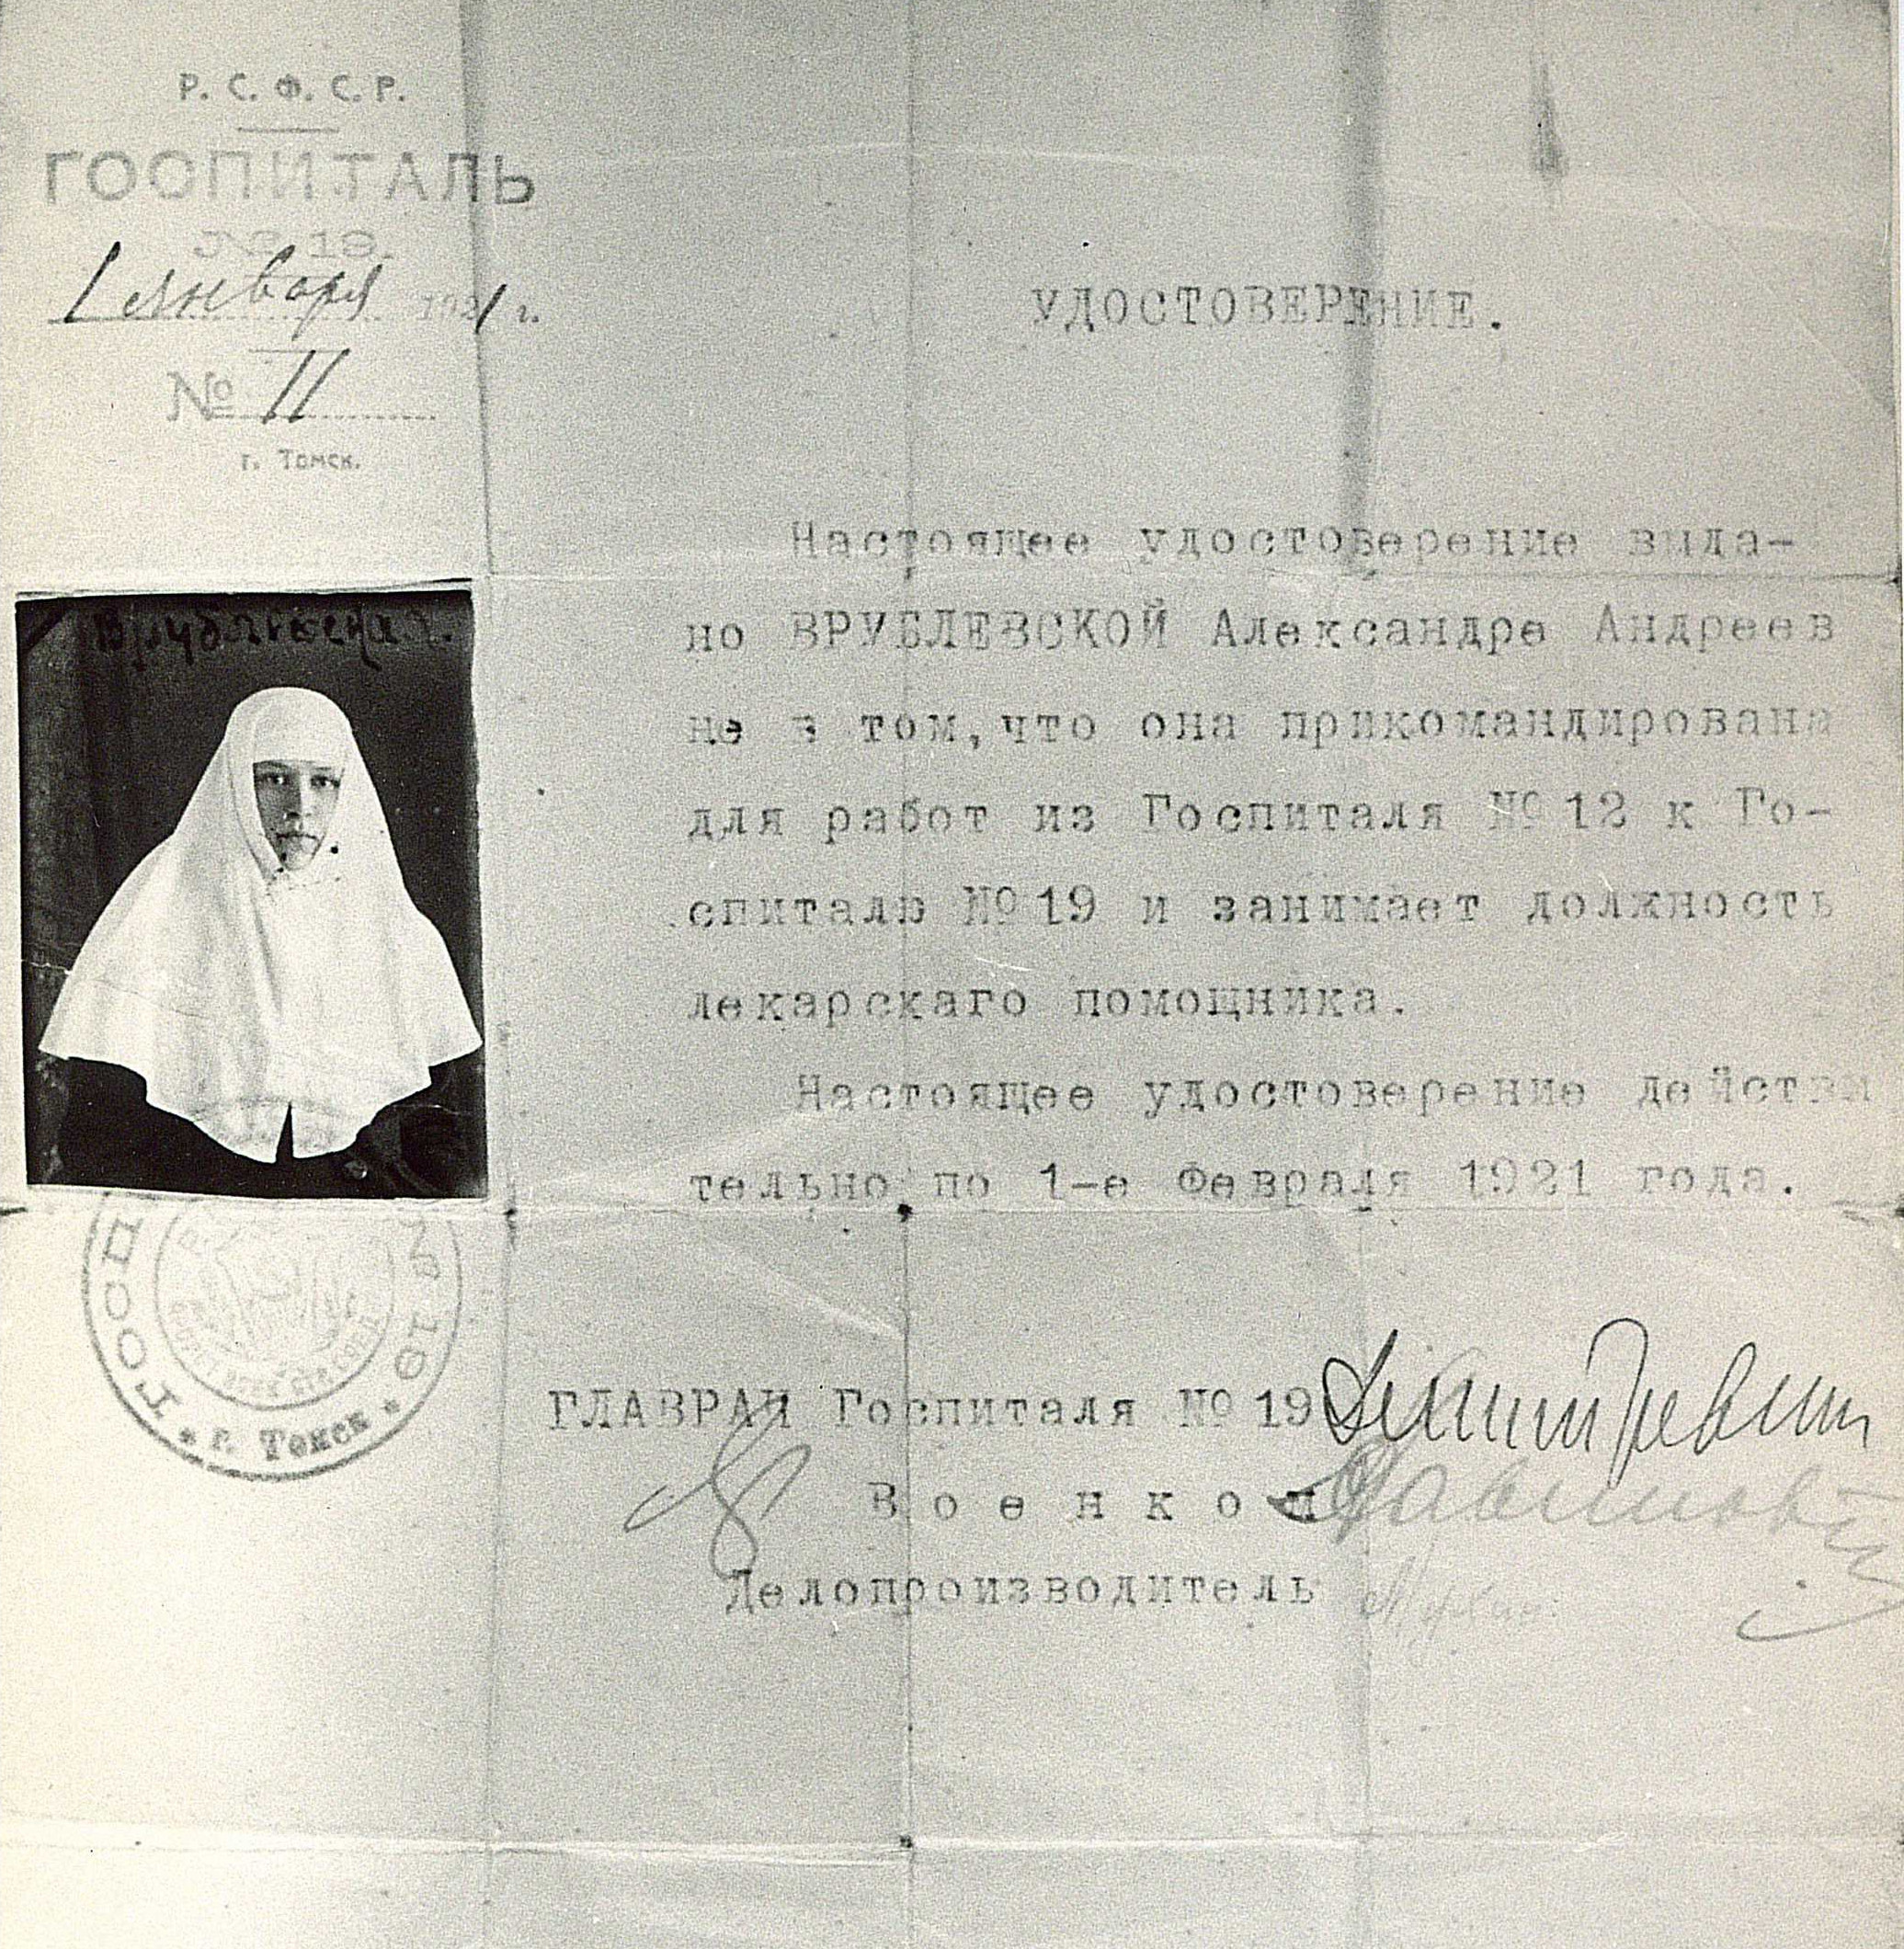 Р. С. Ф. С. Р.
ГОСПИТАЛЬ
№ 19.
1 Января 1921 г.
№ 11
г. Томск.
УДОСТОВЕРЕНИЕ.
Настоящее удостоверение выда-
но ВРУБЛЕВСКОЙ Александре Андреев
не в том, что она прикомандирована
для работ из Госпиталя № 12 к Го-
спиталю № 19 и занимает должность
лекарскаго помощника.
Настоящее удостоверение действи
тельно по 1-е Февраля 1921 года.
Врублевская.
ГОСП № 19 * г. Томск *
ГЛАВРАЧ Госпиталя № 19
Военком
Делопроизводитель